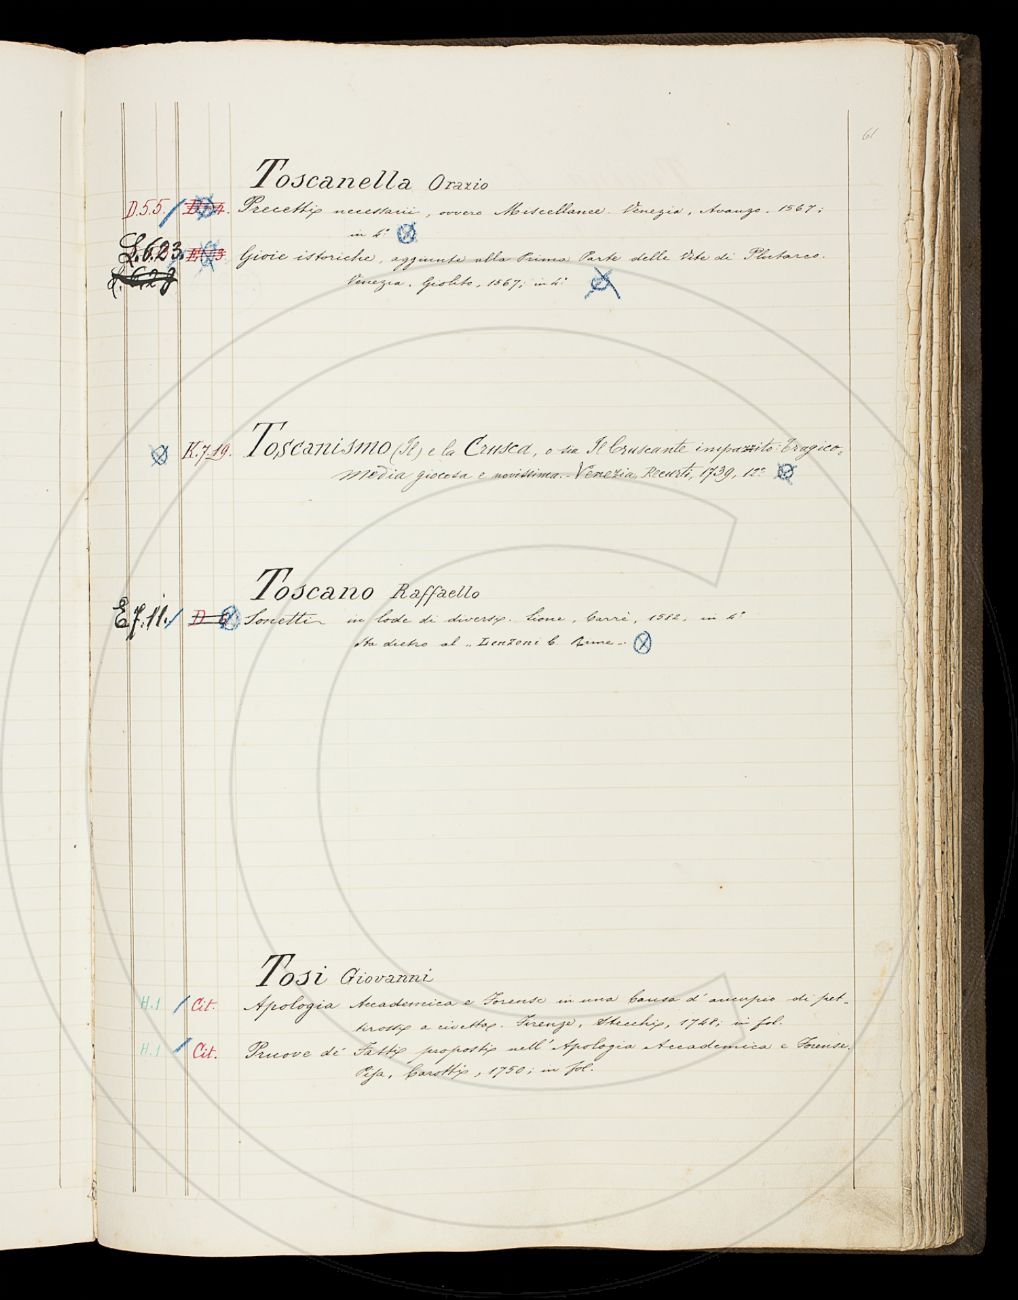 61
Toscanella Orazio
D.5.5. Precetti necessarii, ovvero Miscellanee. Venezia, Avanzo. 1567;
in 4°
L.6.23. Gioie istoriche, aggiunte alla Prima Parte delle Vite di Plutarco.
L.6.23 Venezia. Giolito, 1567; in 4°
K.7.19. Toscanismo (Il) e la Crusca, o sia Il Cruscante impazzito: Tragico=
media giocosa e novissima. - Venezia, Recurti, 1739, 12°
Toscano Raffaello
E.7.11. D Sonetti in lode di diversi. Lione, Carrè, 1582; in 4°
Sta dietro al „ Lenzoni C. Rime „.
Tosi Giovanni
H.1 Cit. Apologia Accademica e Forense in una Causa d'aucupio di pet-
tirossi a civetta. Firenze, Stecchi, 1748; in fol.
H.1 Cit. Pruove de' Fatti proposti nell'Apologia Accademica e Forense.
Pisa, Carotti, 1750; in fol.